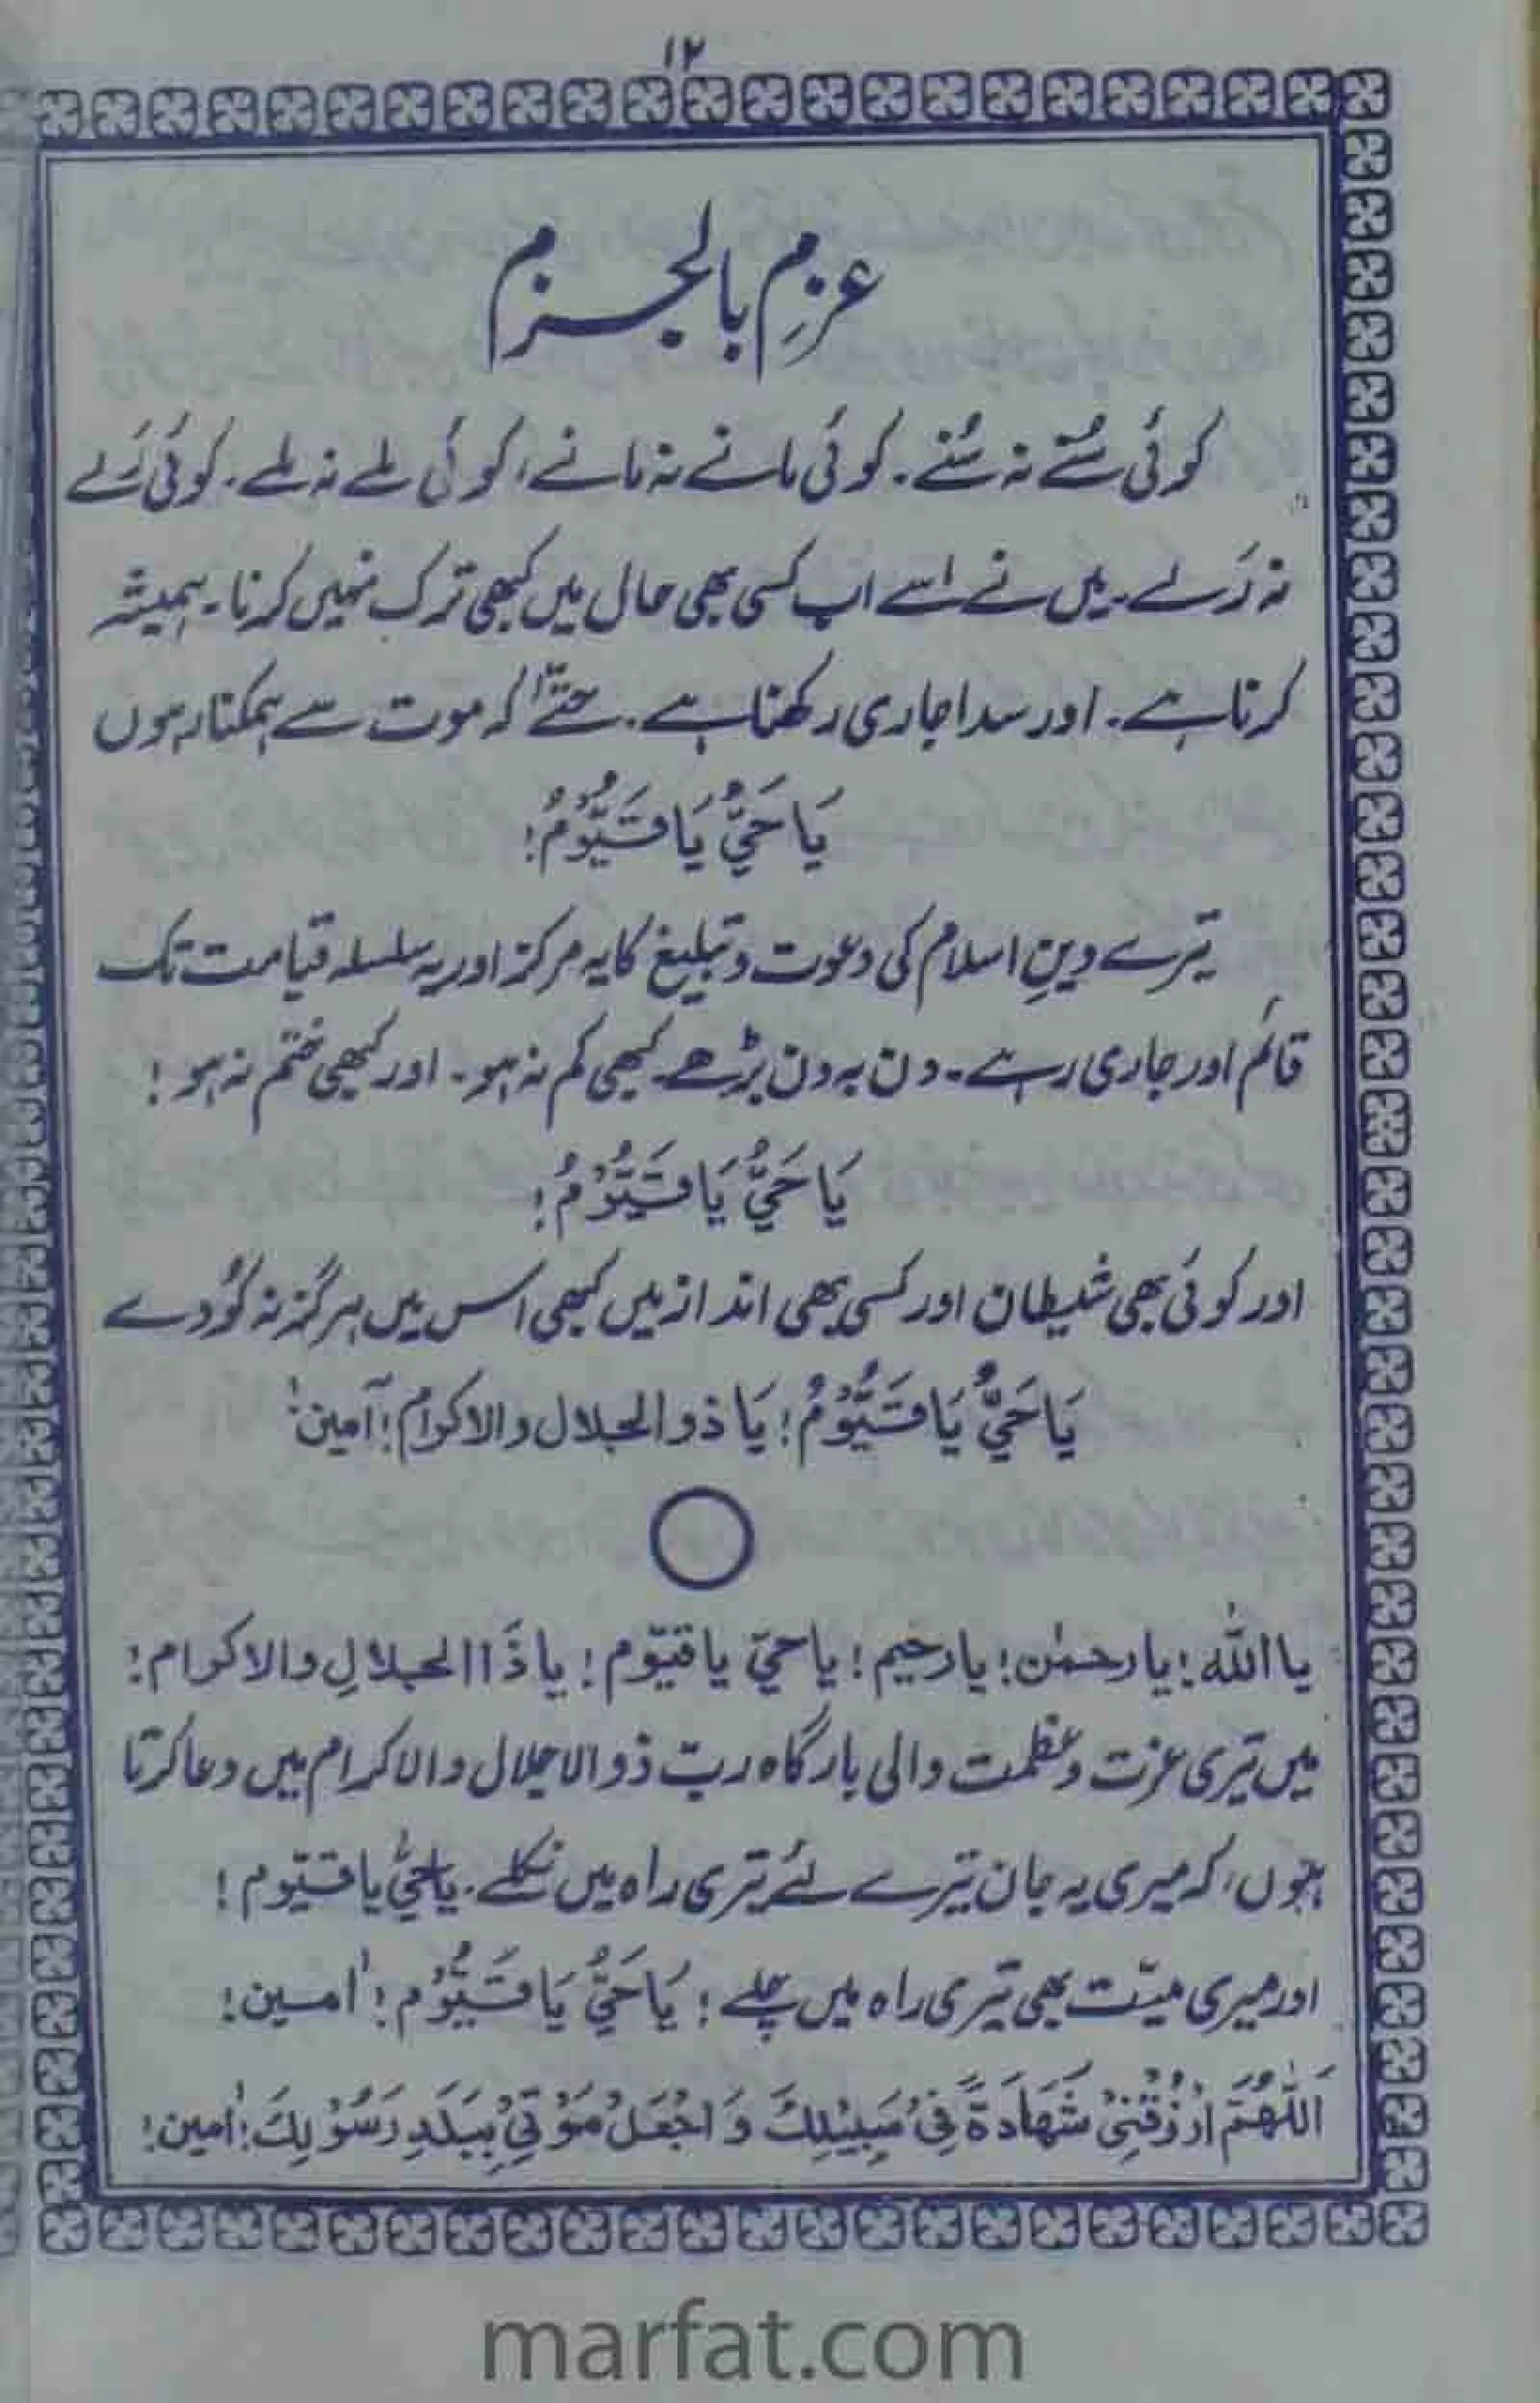 ۱۲
عزمِ بالجزم
کوئی سُنے نہ سُنے۔ کوئی مانے نہ مانے، کوئی ملے نہ ملے۔ کوئی رَلے
نہ رَلے۔ میں نے اسے اب کسی بھی حال میں کبھی ترک نہیں کرنا۔ ہمیشہ
کرنا ہے۔ اور سدا جاری رکھنا ہے۔ حتّےٰ کہ موت سے ہمکنار ہوں
یَا حَیُّ یَا قَیُّوْمُ!
تیرے دینِ اسلام کی دعوت و تبلیغ کا یہ مرکز اور یہ سلسلہ قیامت تک
قائم اور جاری رہے۔ دن بہ دن بڑھے۔ کبھی کم نہ ہو۔ اور کبھی ختم نہ ہو!
یَا حَیُّ یَا قَیُّوْمُ!
اور کوئی بھی شیطان اور کسی بھی انداز میں کبھی اس میں ہرگز نہ کُودے
یَا حَیُّ یَا قَیُّوْمُ! یَا ذوالجلال والاکرام! آمین!
یا اللّٰہ! یا رحمٰن! یا رحیم! یا حیّ یا قیّوم! یا ذَا الجلالِ والاکرام!
میں تیری عزت و عظمت والی بارگاہ ربّ ذوالاجلال والاکرام میں دعا کرتا
ہوں، کہ میری یہ جان تیرے لئے تیری راہ میں نکلے۔ یا حیُّ یا قیّوم!
اور میری میّت بھی تیری راہ میں چلے! یَا حَیُّ یَا قَیُّوْم! اٰمین!
اَللّٰھُمَّ ارْزُقْنِیْ شَھَادَۃً فِیْ سَبِیْلِکَ وَ اجْعَلْ مَوْتِیْ بِبَلَدِ رَسُوْلِکَ! اٰمین!
marfat.com